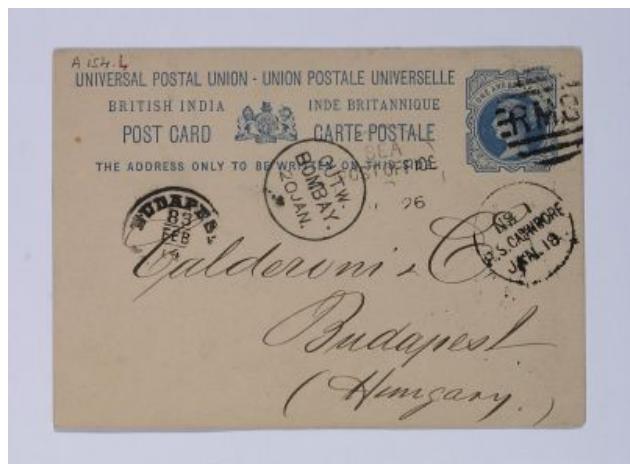 A 154.L
UNIVERSAL POSTAL UNION - UNION POSTALE UNIVERSELLE
BRITISH INDIA INDE BRITANNIQUE
POST CARD CARTE POSTALE
THE ADDRESS ONLY TO BE WRITTEN ON THIS SIDE
SEA
POST OFFICE
26
OUTW.
BOMBAY.
20 JAN.
BUDAPEST
83
FEB
JAN. 18
Calderoni & C
Budapest
(Hungary.)